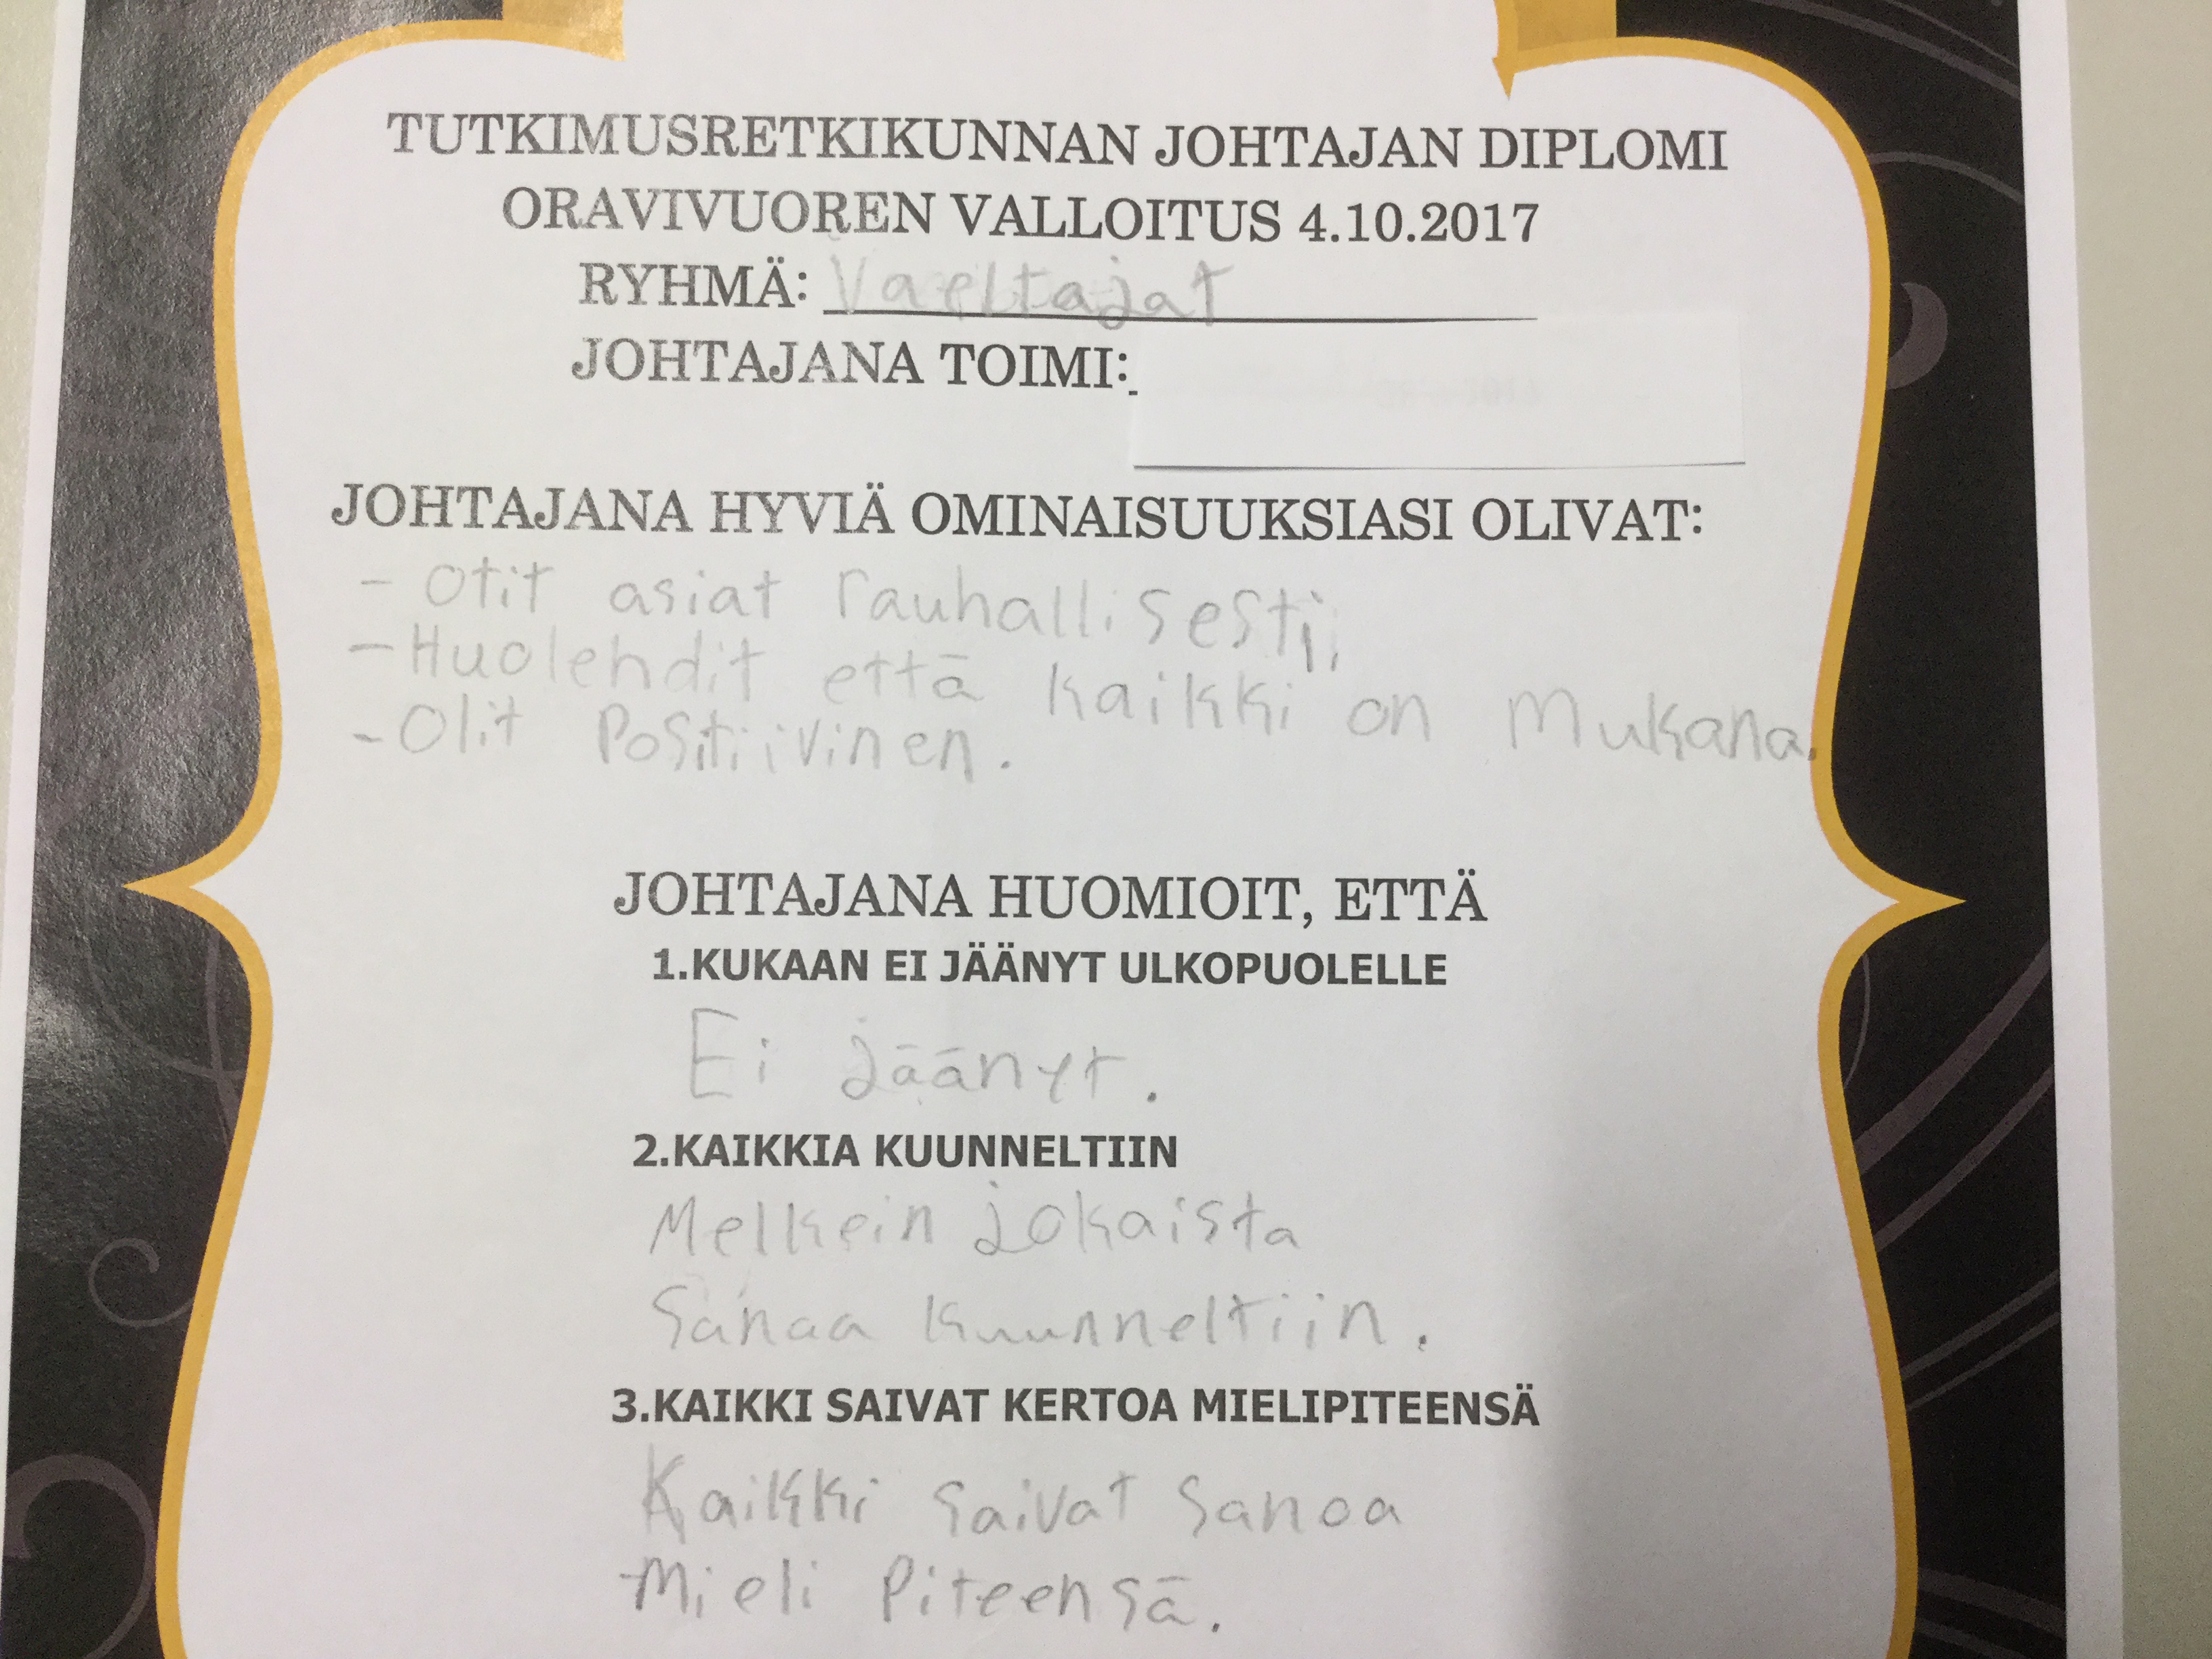 TUTKIMUSRETKIKUNNAN JOHTAJAN DIPLOMI
ORAVIVUOREN VALLOITUS 4.10.2017
RYHMÄ: Vaeltajat
JOHTAJANA TOIMI:
JOHTAJANA HYVIÄ OMINAISUUKSIASI OLIVAT:
- Otit asiat rauhallisesti.
- Huolehdit että kaikki on Mukana.
- Olit Positiivinen.
JOHTAJANA HUOMIOIT, ETTÄ
1.KUKAAN EI JÄÄNYT ULKOPUOLELLE
Ei jäänyt.
2.KAIKKIA KUUNNELTIIN
Melkein jokaista
Sanaa kuunneltiin.
3.KAIKKI SAIVAT KERTOA MIELIPITEENSÄ
Kaikki saivat sanoa
Mieli Piteensä.